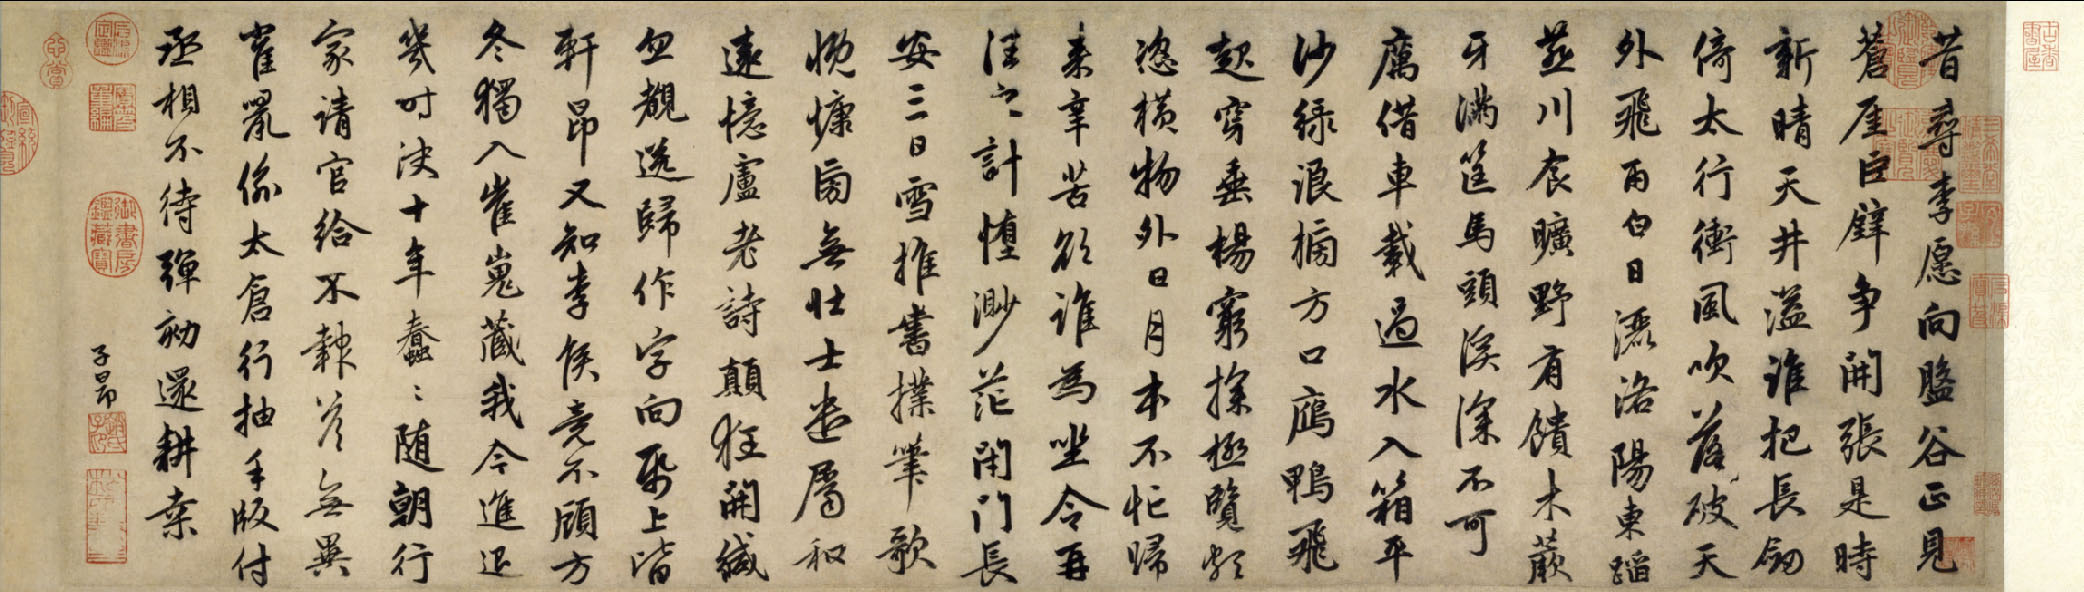 昔尋李愿向盤谷正見
蒼厓巨壁争開張是時
新晴天井溢誰把長劒
倚太行衝風吹落破天
外飛雨白日灑洛陽東蹈
燕川食曠野有饋木蕨
牙滿筐馬頭溪深不可
厲借車載過水入箱平
沙緑浪榜方口鴈鴨飛
起穿垂楊窮探極覽頗
恣橫物外日月本不忙歸
来辛苦欲誰為坐令再
往之計墮渺茫閉門長
安三日雪推書撲筆歌
慨慷旁無壮士遣屬和
遠憶盧老詩顛狂開緘
忽覩送歸作字向紙上皆
軒昂又知李侯竟不顧方
冬獨入崔嵬藏我今進退
幾时決十年蠢〻随朝行
家請官給不報答無異
雀鼠偷太倉行抽手版付
丞相不待彈劾還耕桒
子昂
御書房鑑藏寶